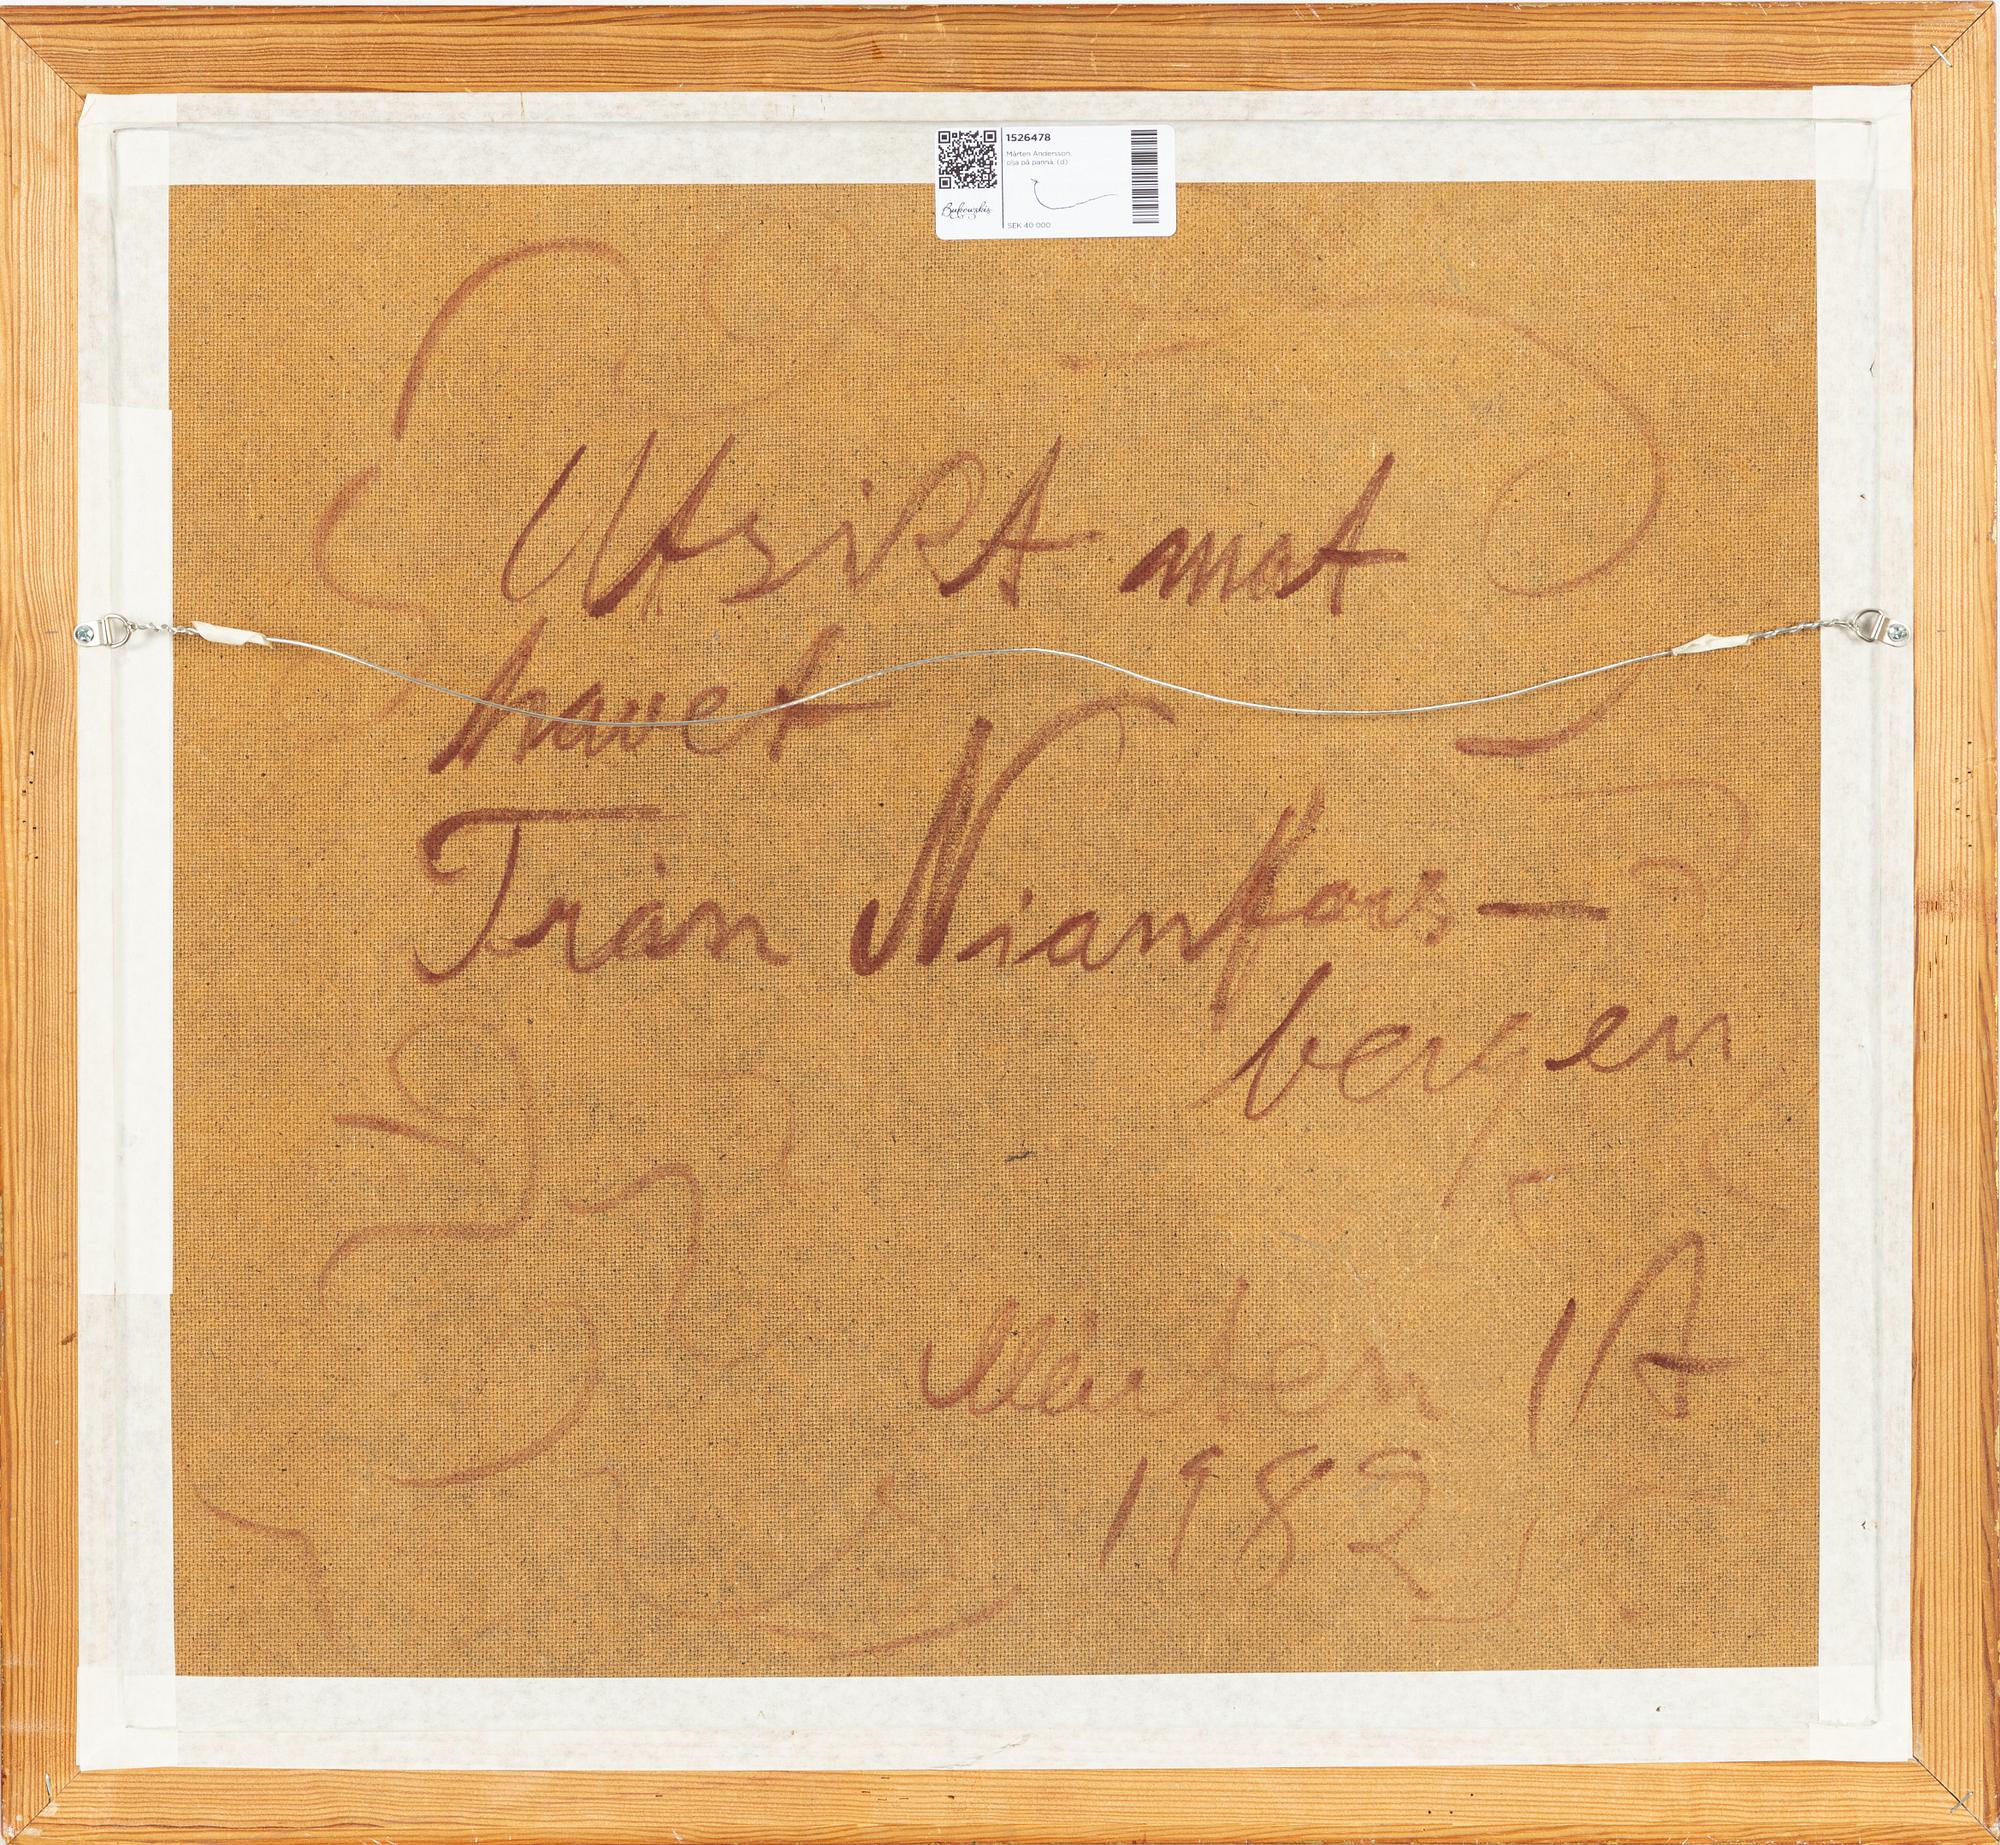 1526478
Mårten Andersson,
olja på pannå. (d)
Bukowskis
SEK 40 000
Utsikt mot
havet
från Nianfors-
bergen
Mårten A
1982